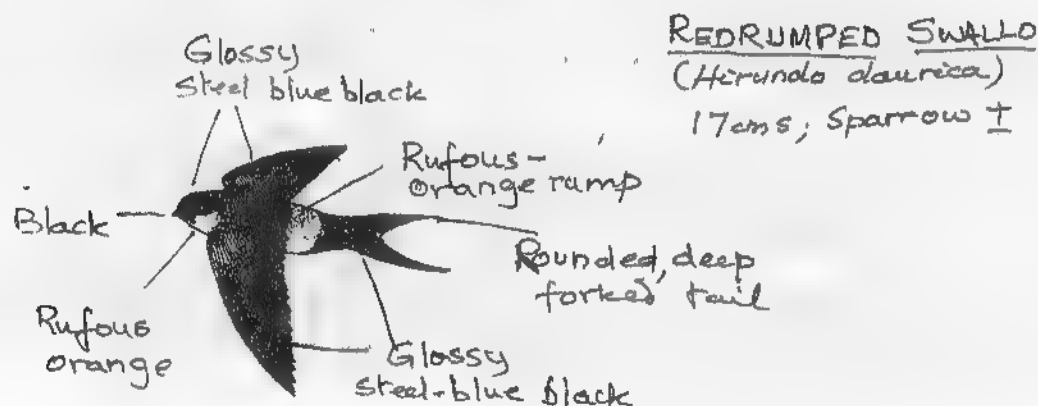 REDRUMPED SWALLO
(Hirundo daurica)
17cms; Sparrow ±
Glossy
Steel blue black
Rufous-
orange ramp
Black
Rounded, deep
forked tail
Rufous
orange
Glossy
steel-blue black